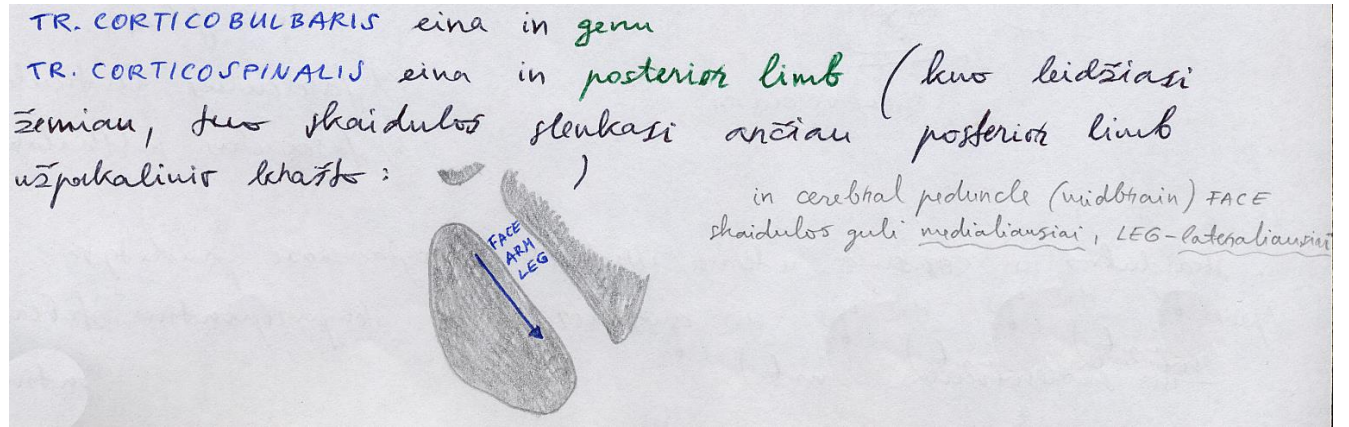 TR. CORTICOBULBARIS eina in genu
TR. CORTICOSPINALIS eina in posterior limb (kuo leidžiasi
žemiau, tuo skaidulos slenkasi arčiau posterior limb
užpakalinio krašto:
)
in cerebral peduncle (midbrain) FACE
skaidulos guli medialiausiai, LEG-lateraliausiai
FACE
ARM
LEG